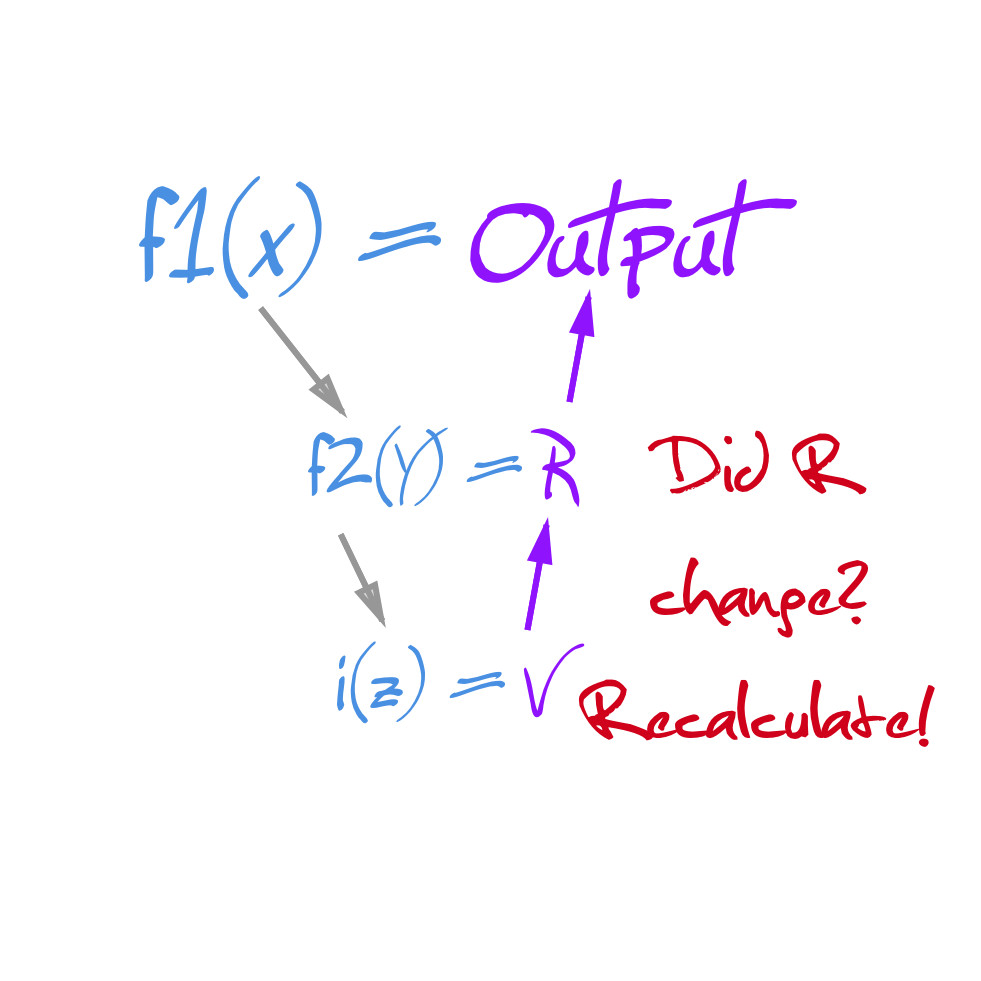 f1(x) = Output
f2(Y) = R
Did R
change?
i(z) = V
Recalculate!